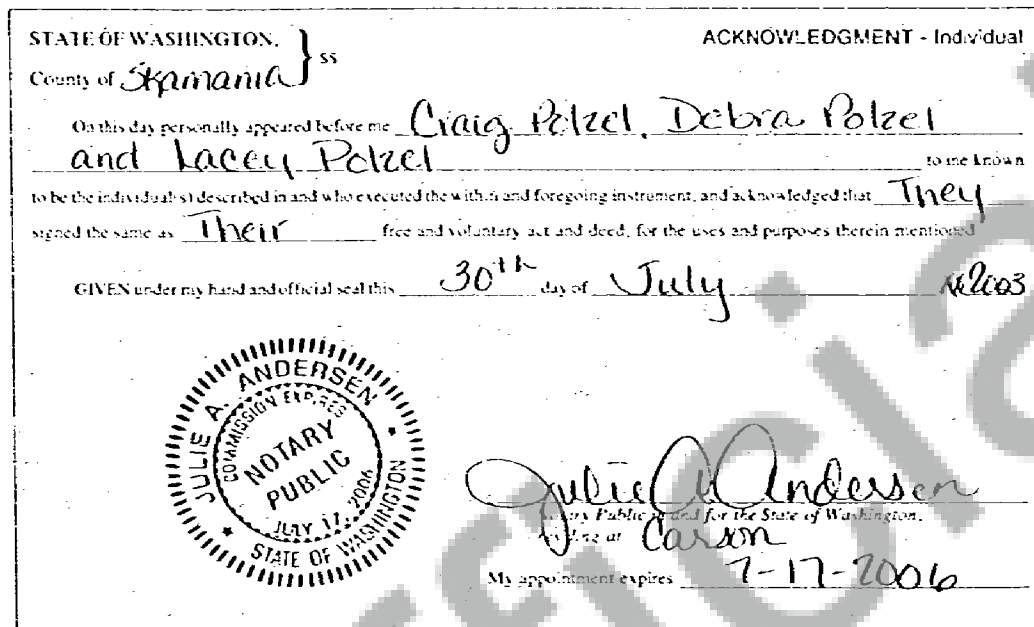 STATE OF WASHINGTON,
County of Skamania } ss
ACKNOWLEDGMENT - Individual
On this day personally appeared before me Craig Polzel, Debra Polzel
and Lacey Polzel to me known
to be the individual(s) described in and who executed the within and foregoing instrument, and acknowledged that They
signed the same as Their free and voluntary act and deed, for the uses and purposes therein mentioned
GIVEN under my hand and official seal this 30th day of July 2003
JULIE A. ANDERSEN
COMMISSION EXPIRES
NOTARY
PUBLIC
JULY 17, 2006
STATE OF WASHINGTON
Julie A Andersen
Notary Public in and for the State of Washington,
residing at Carson
My appointment expires 7-17-2006